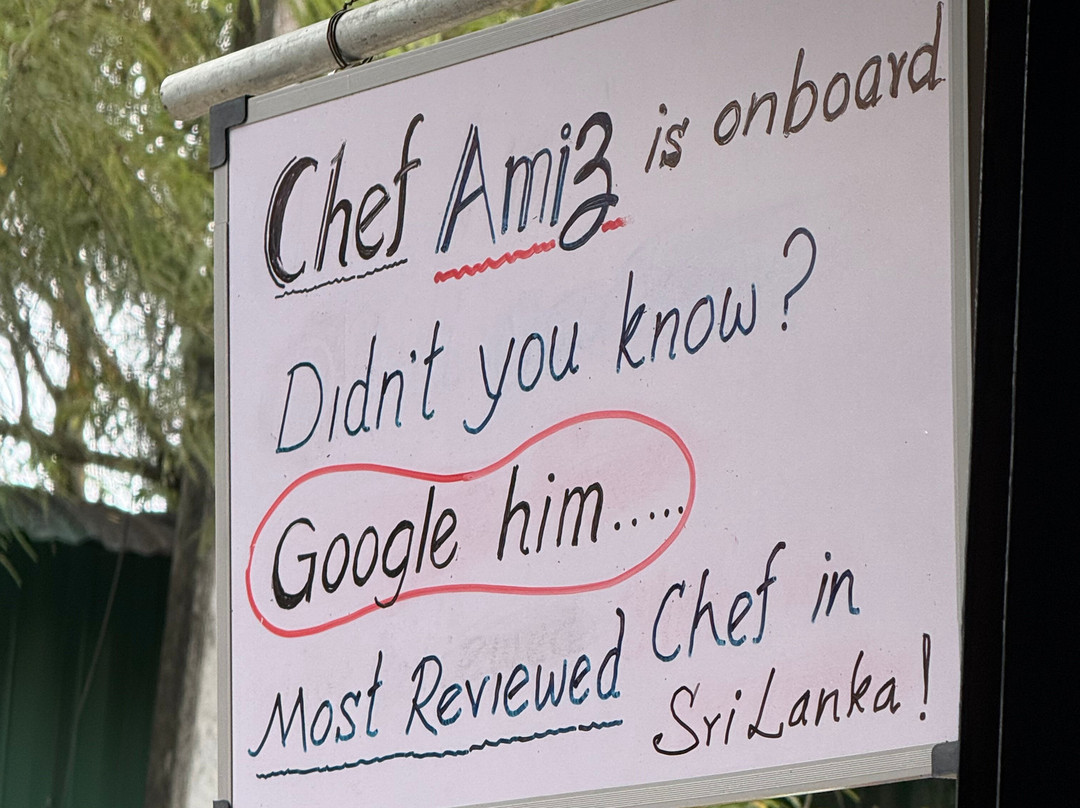 Chef Amiz is onboard
Didn't you know?
Google him.....
Most Reviewed Chef in
Sri Lanka!